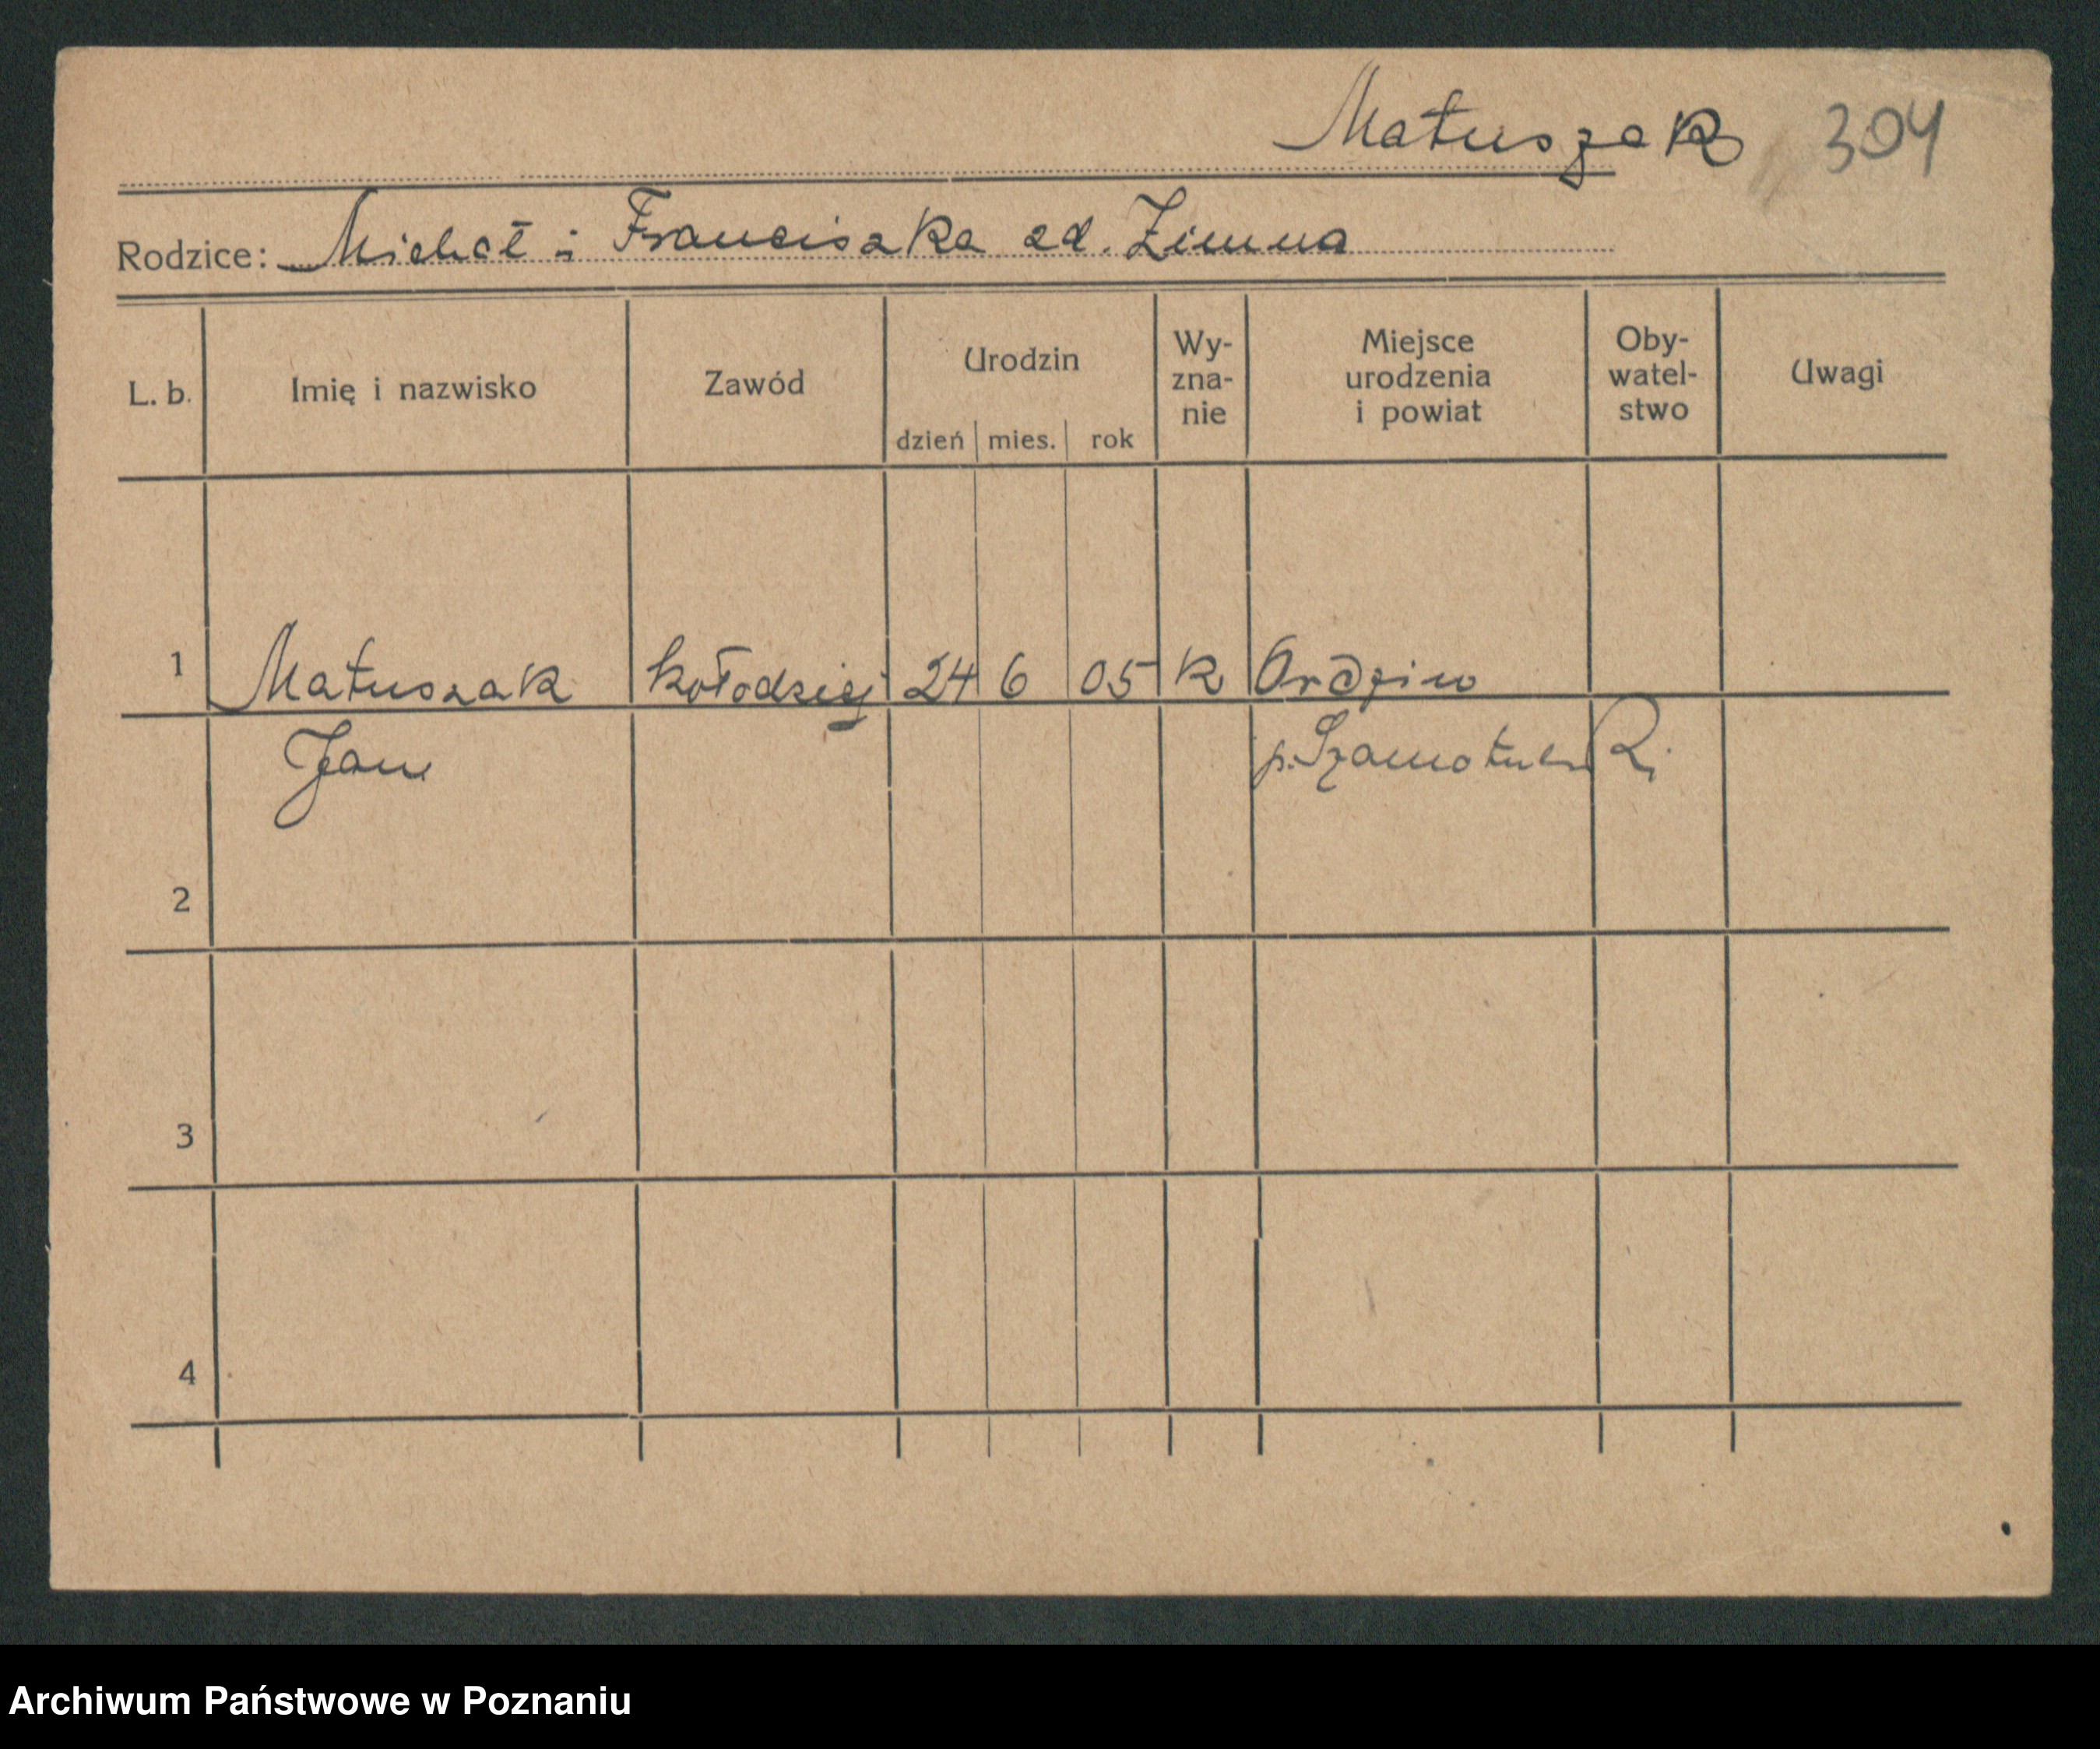 Matuszak 304
Rodzice: Michał i Franciszka zd. Zimna
L. b. Imię i nazwisko Zawód Urodzin dzień mies. rok Wy-zna-nie Miejsce urodzenia i powiat Oby-watel-stwo Uwagi
1 Matuszak kołodziej 24 6 05 K Ordzin
Jan p. Szamotuły R.
2
3
4
Archiwum Państwowe w Poznaniu